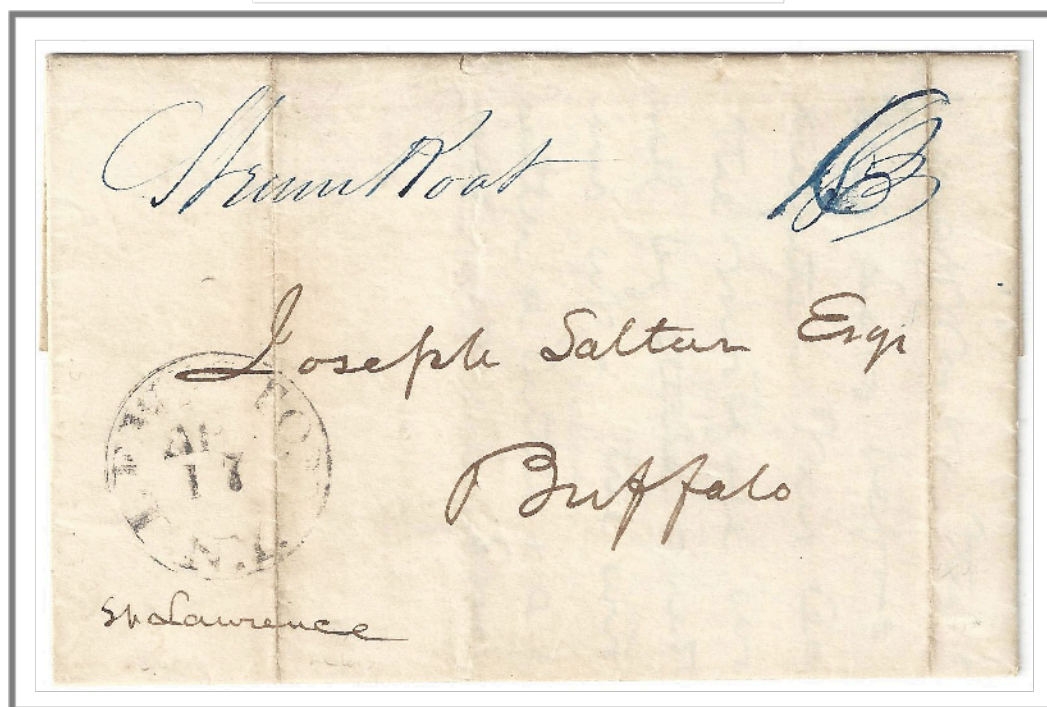 Steam Boat
Joseph Salter Esqr
Buffalo
AP
17
N.Y.
St Lawrence